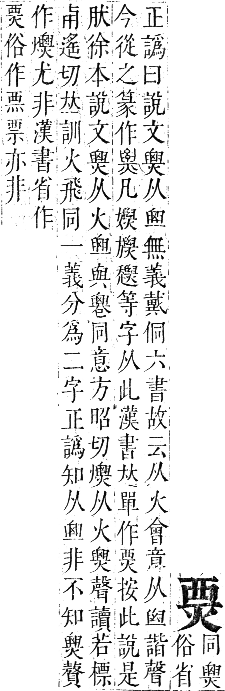 㶾同𤐫
俗省
正譌曰說文𤐫从無義戴侗六書故云从火會意从囟諧聲
今從之篆作凡等字从此漢書单作㶾按此說是
肰徐本說文𤐫从火與同意方昭切熛从火𤐫聲讀若標
甭遙切𠀤訓火飛同一義分爲二字正譌知从非不知𤐫贅
作熛尤非漢書省作
㶾俗作票亦非